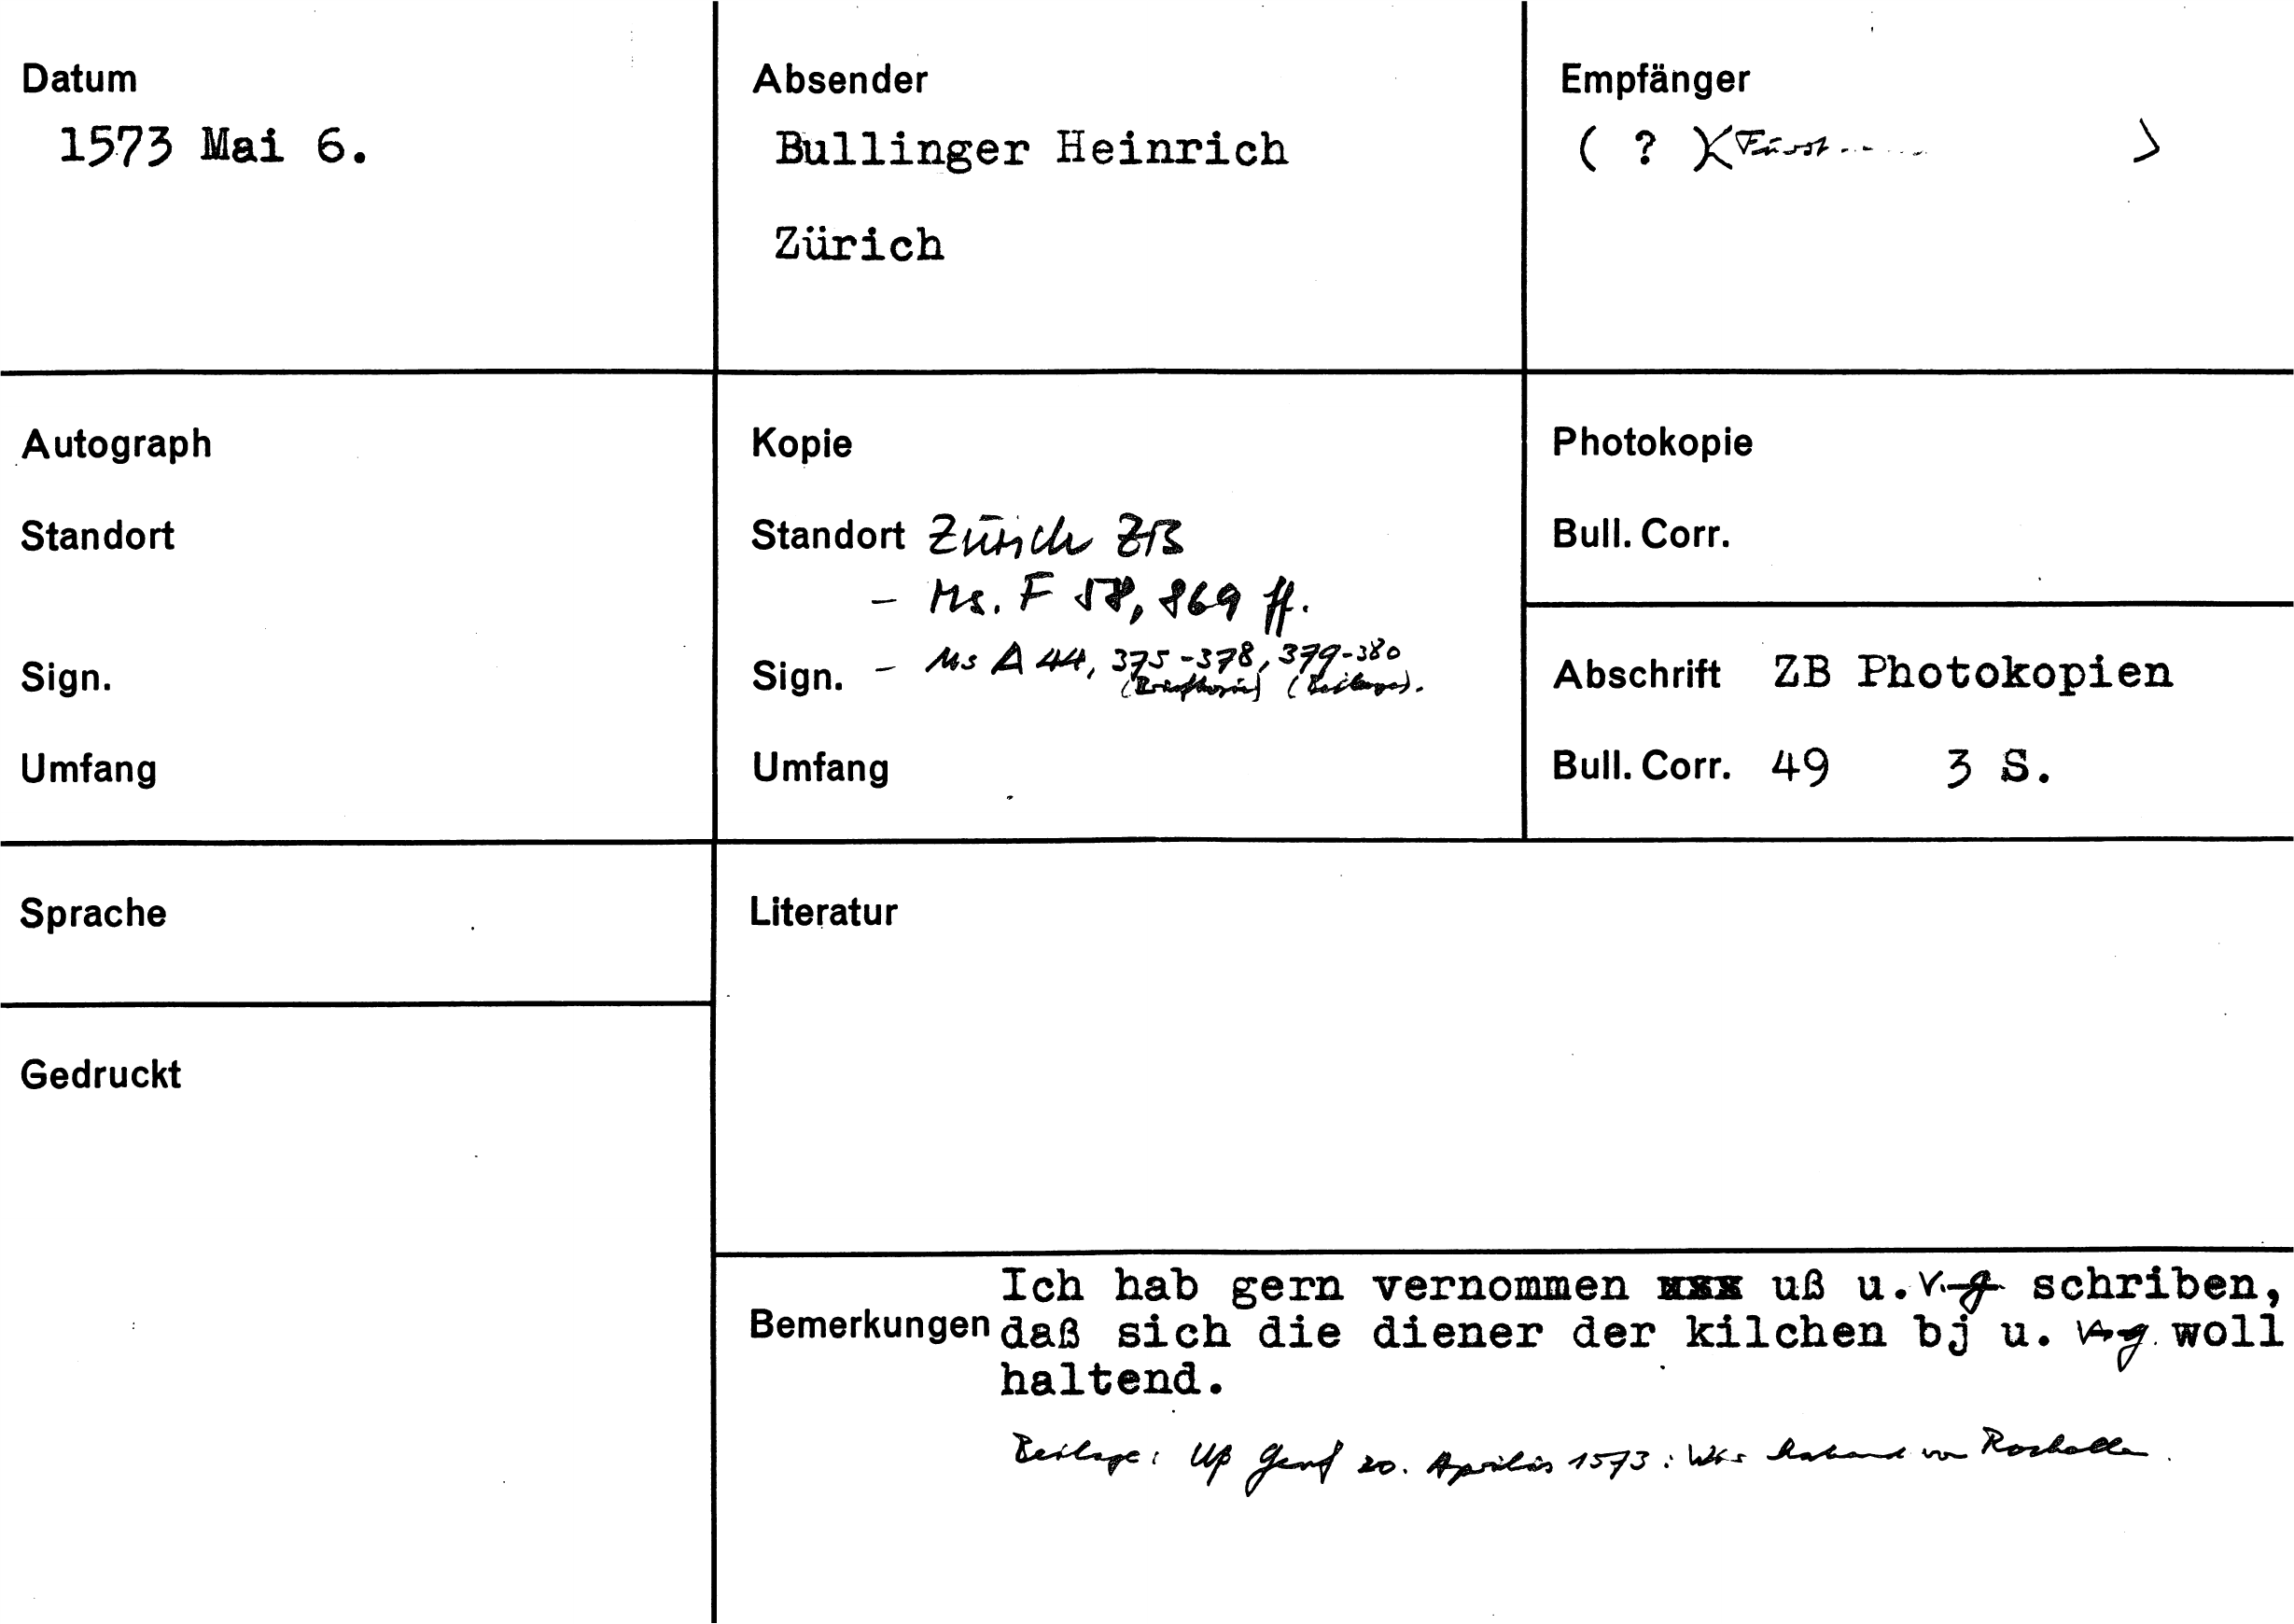 Datum
1573 Mai 6.
Absender
Bullinger Heinrich
Zürich
Empfänger
( ? )
Autograph
Standort
Sign.
Umfang
Kopie
Standort Zürich ZB
- Ms. F 58, 869 ff.
Sign. - Ms A 44, 375-378, 379-380
(Beilage).
Umfang
Photokopie
Bull. Corr.
Abschrift ZB Photokopien
Bull. Corr. 49 3 S.
Sprache
Gedruckt
Literatur
Bemerkungen
Ich hab gern vernommen uß u. v. g schriben,
daß sich die diener der kilchen bj u. v. g. woll
haltend.
Beilage: Uß Genf 20. Aprilis 1573: Wir habend von Rochellen.